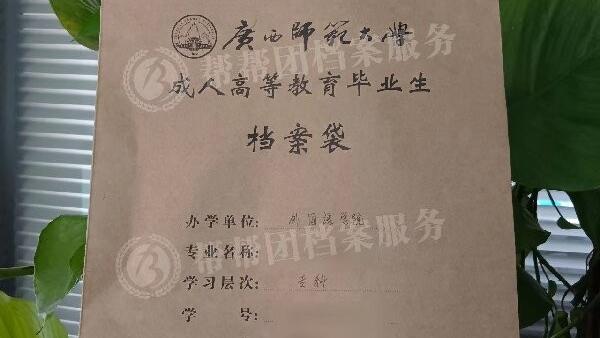 廣西師範大學
成人高等教育毕业生
档案袋
办学单位: 外国语学院
专业名称:
学习层次: 专科
学 号:
帮帮团档案服务
帮帮团档案服务